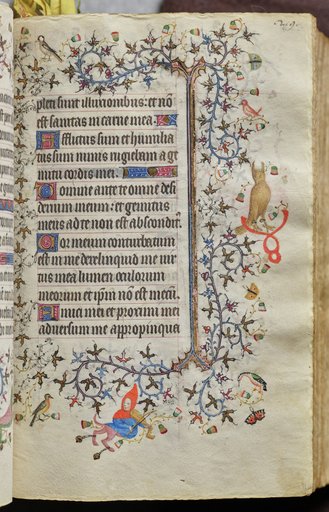 pleti sunt illusionibus: et nõ
est sanitas in carne mea.
Afflictus sum et humilia
tus sum nimis rugiebam a ge
mitu cordis mei.
Domine ante te omne desi
derium meum: et gemitus
meus a te non est absconditꝰ.
Cor meum conturbatum
est in me dereliquid me vir
tus mea lumen oculorum
meorum et ip̃m nõ est mecũ.
Amici mei et proximi mei
adversum me appropinqua